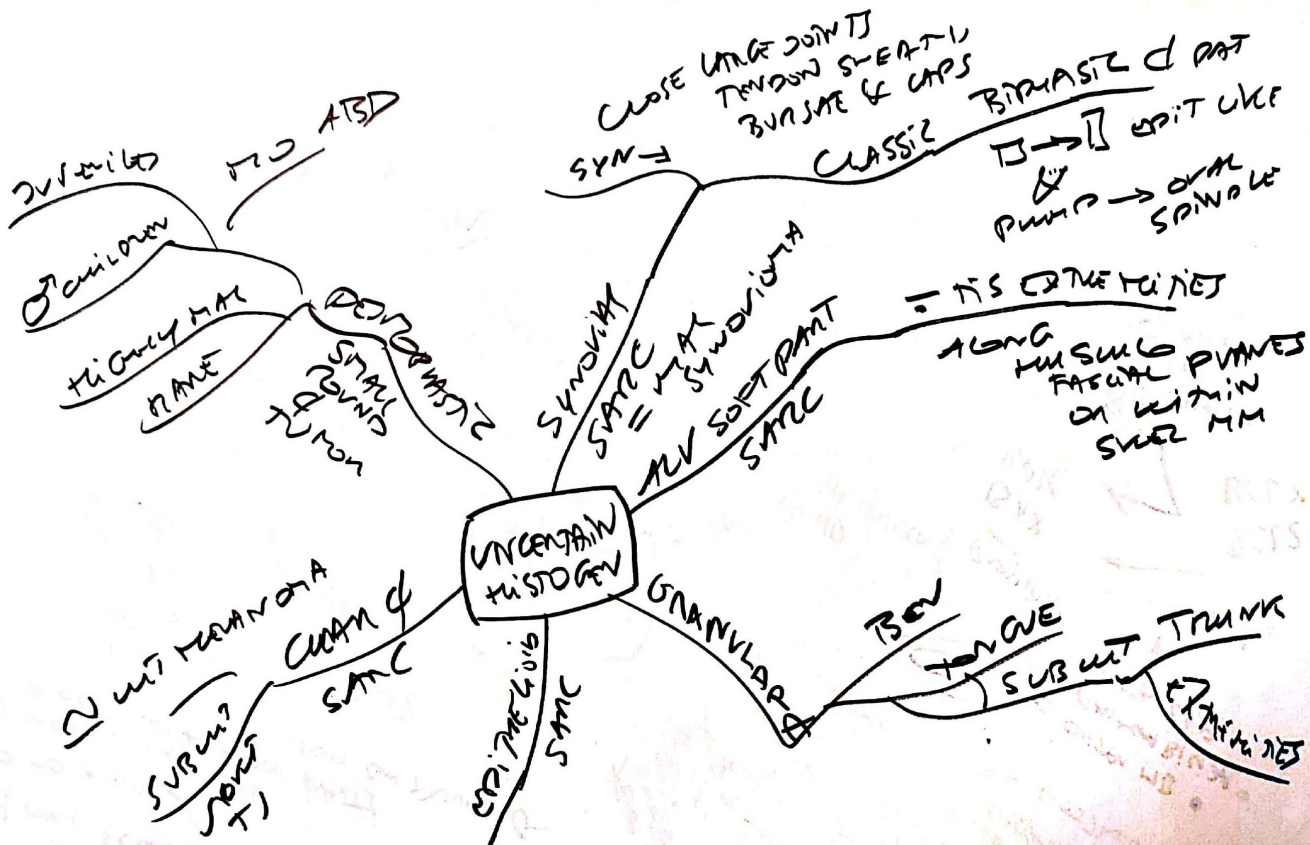 UNCERTAIN
HISTOGEN
SYNOVIAL
SARC
= MAL
SYNOVIOMA
CLOSE LARGE JOINTS
TENDON SHEATH
BURSAE & CAPS
CLASSIC
BIPHASIC
PAT
EPIT LIKE
&
OVAL
SPINDLE
ALV SOFT PART
SARC
TIS EXTREMITIES
ALONG
MUSCULO
FASCIAL PLANES
OR WITHIN
SKEL MM
GRANULAR
BEN
TONGUE
SUBCUT
TRUNK
EXTREMITIES
EPITHELIOID
SARC
CLEAR
SARC
CUT MELANOMA
SUBCUT
SOFT
TIS
DESMOPLASTIC
SMALL
ROUND
TUMOR
RARE
HIGHLY MAL
♂ CHILDREN
JUVENILES
ABD